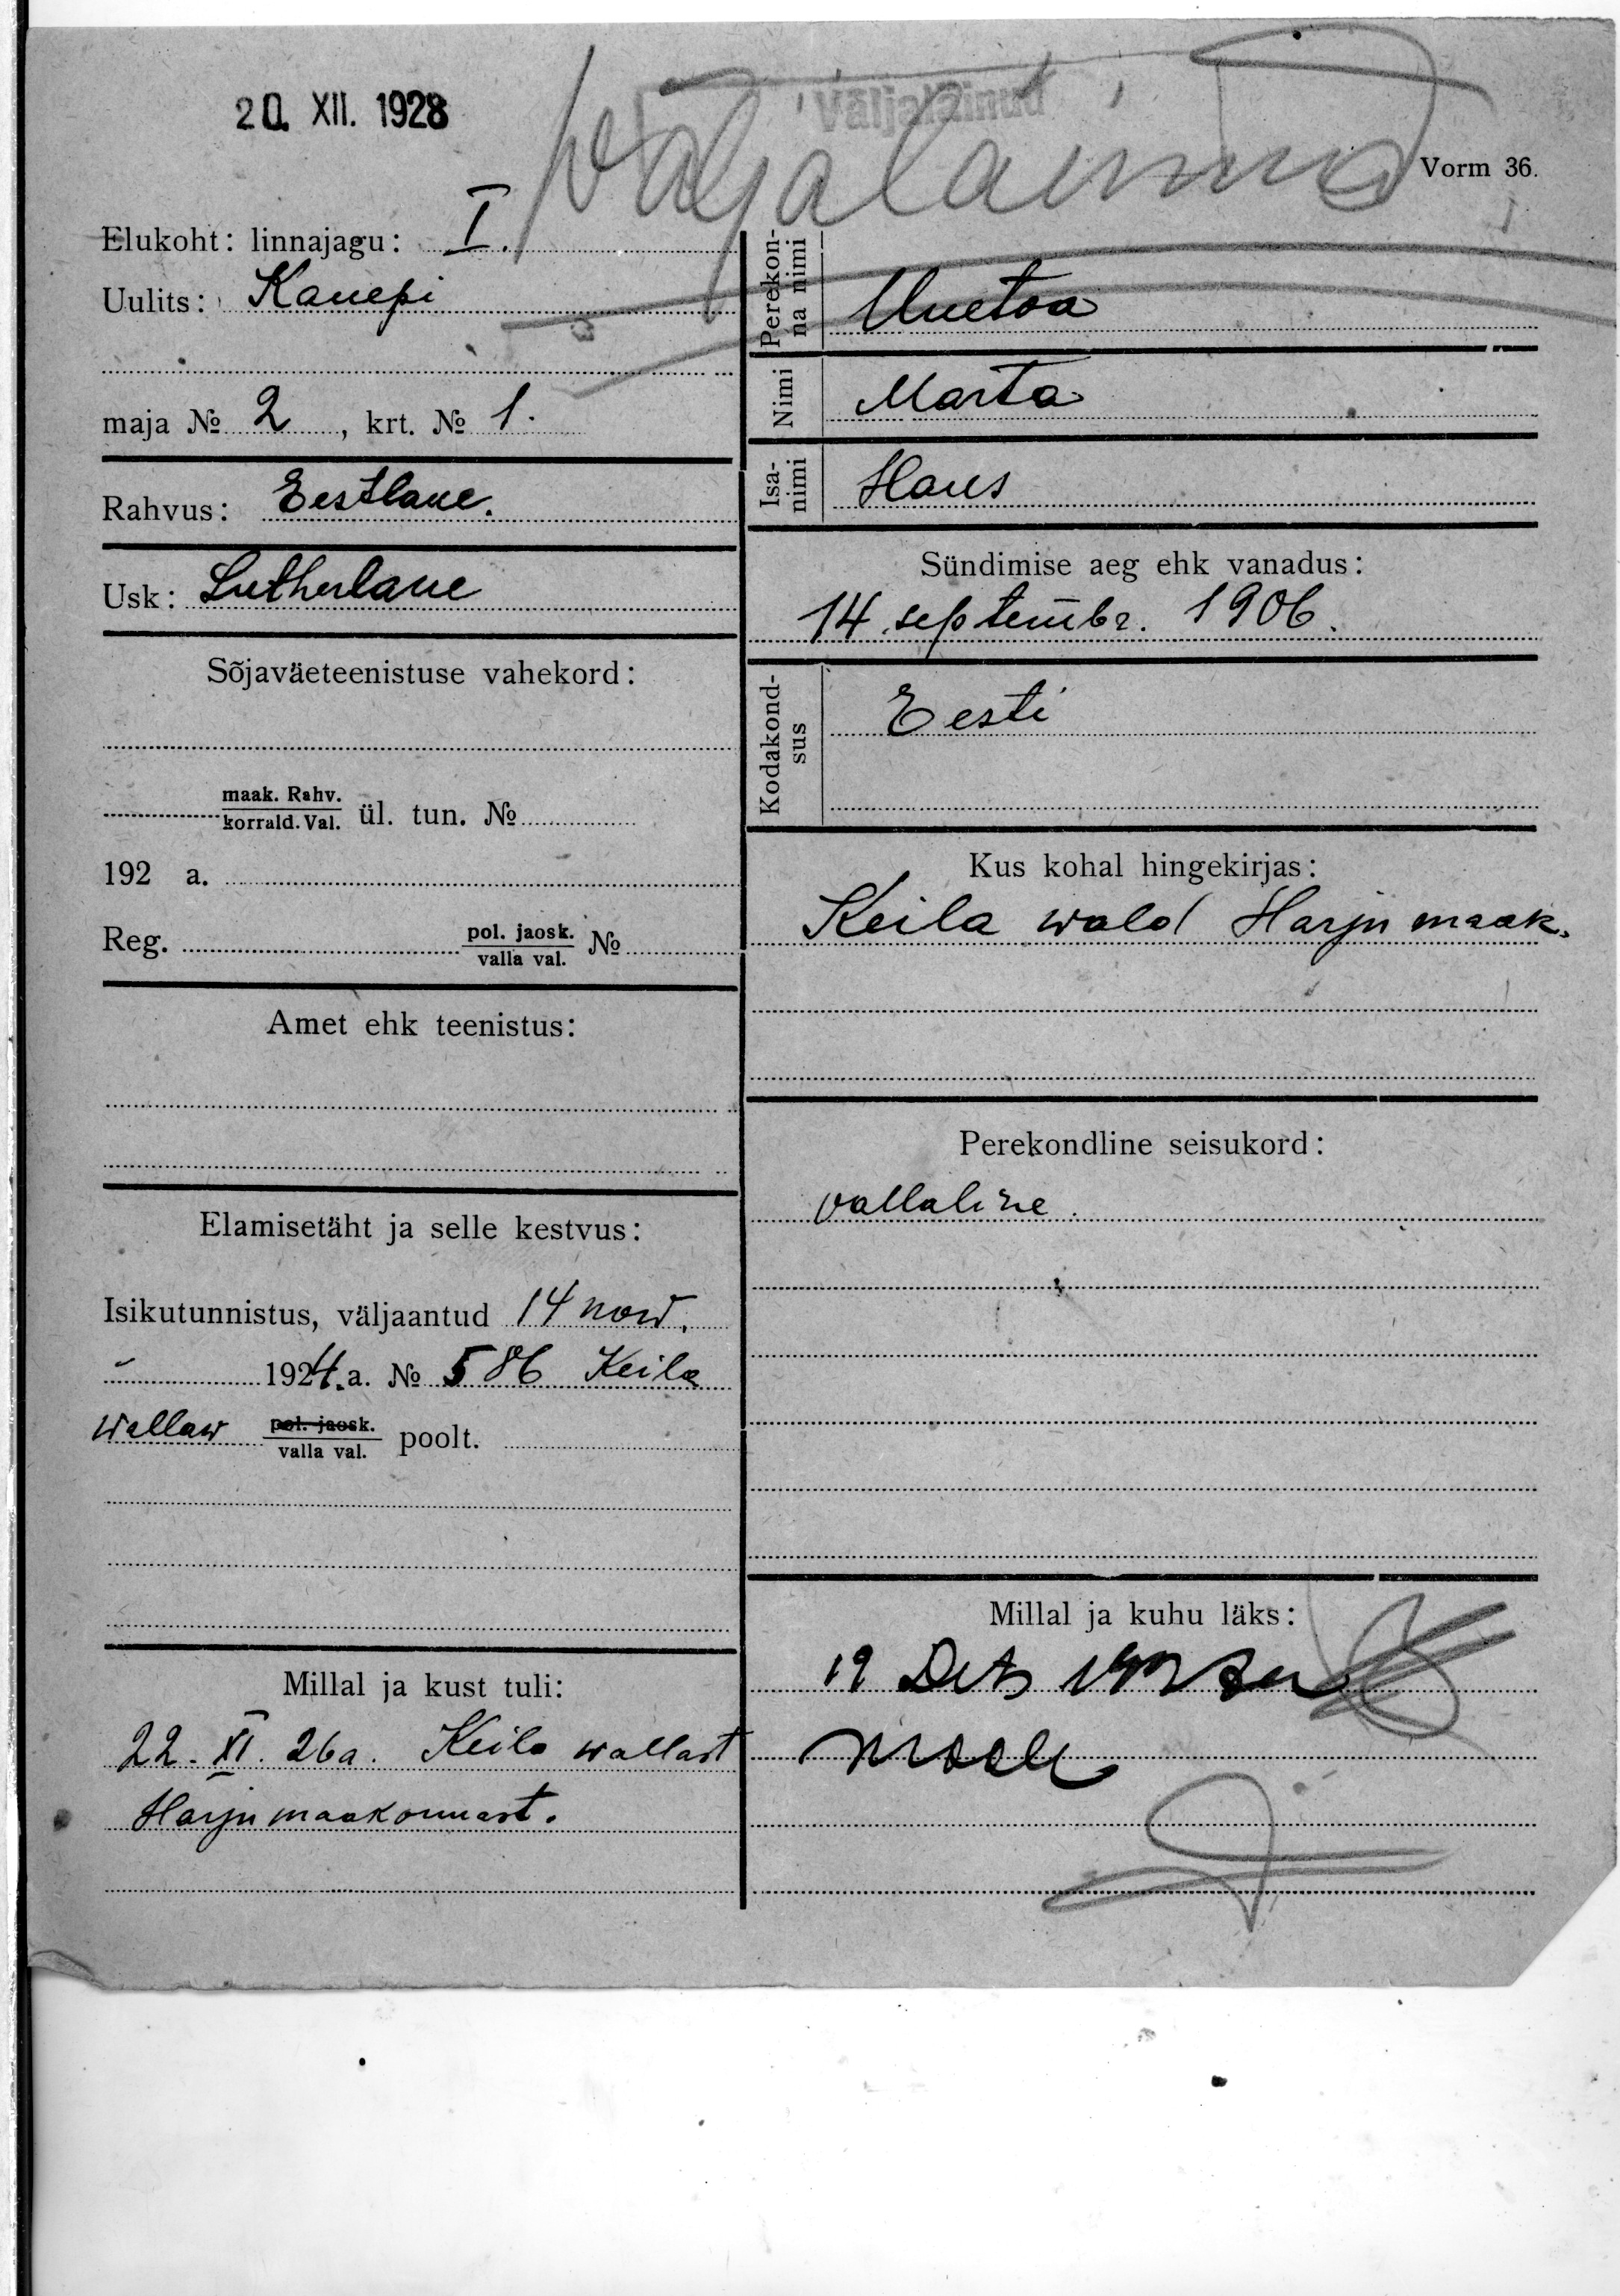 20. XII. 1928
Väljaläinud
Wäljaläinud
Vorm 36.
Elukoht: linnajagu: I.
Uulits: Kanepi
maja № 2, krt. № 1.
Rahvus: Eestlane.
Usk: Lutherlane
Sõjaväeteenistuse vahekord:
maak. Rahv.
korrald. Val. ül. tun. №
192 a.
Reg. pol. jaosk. №
valla val.
Amet ehk teenistus:
Elamisetäht ja selle kestvus:
Isikutunnistus, väljaantud 14 now.
1924. a. № 586 Keila
wallaw pol. jaosk. poolt.
valla val.
Millal ja kust tuli:
22. XI. 26a. Keila wallast
Harju maakonnast.
Perekonna nimi Uuetoa
Nimi Marta
Isanimi Hans
Sündimise aeg ehk vanadus:
14. septembr. 1906.
Kodakondsus Eesti
Kus kohal hingekirjas:
Keila wald Harju maak.
Perekondline seisukord:
vallaline.
Millal ja kuhu läks:
19 Dets
maale